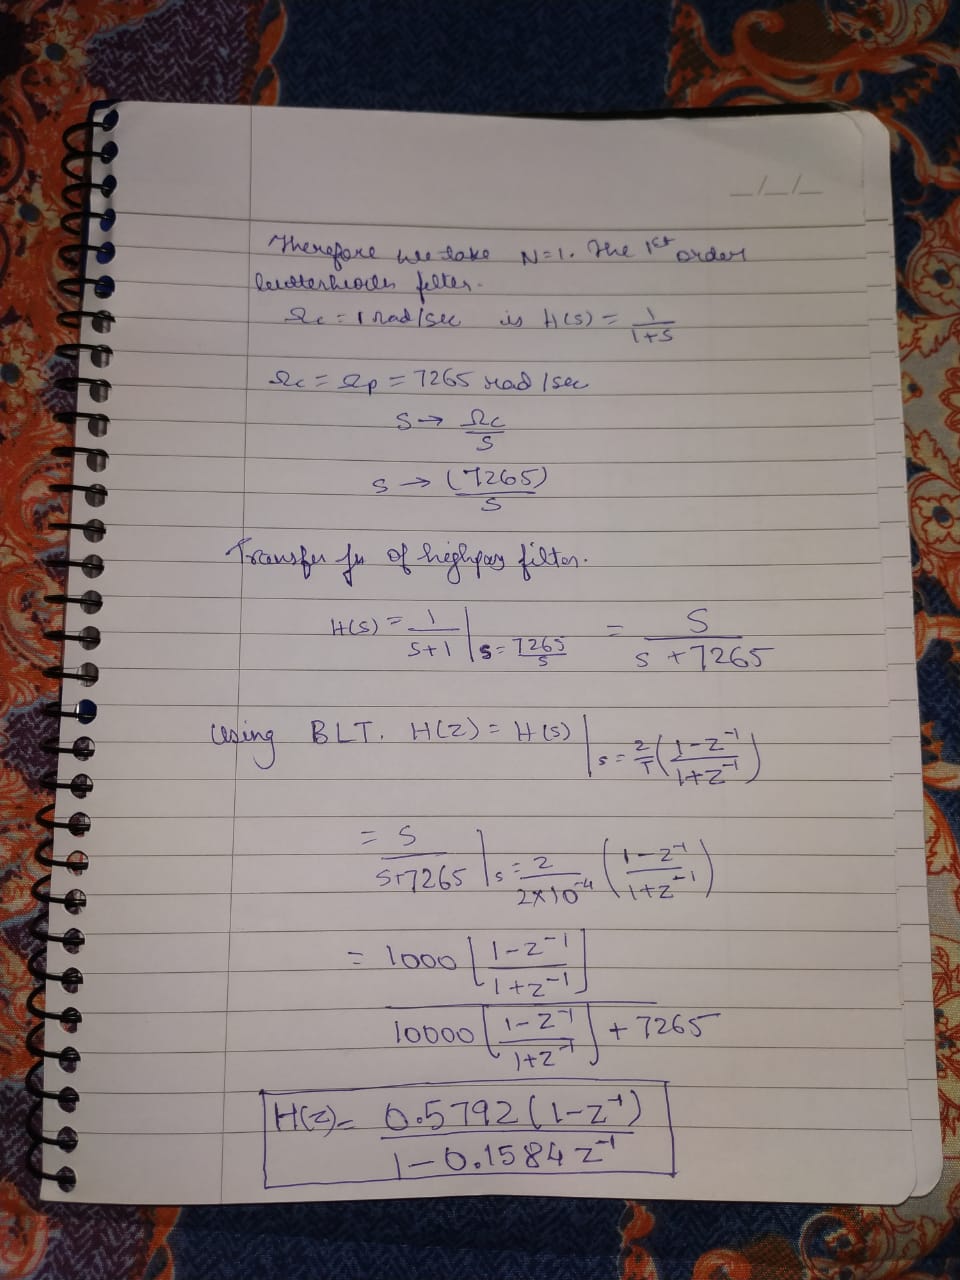 _/_/_
Therefore we take N=1. The 1st order
butterworth filter.
Ωc = 1 rad/sec is H(s) = 1/(1+s)
Ωc = Ωp = 7265 rad/sec
S → Ωc/s
s → (7265)/s
Transfer fn of highpass filter.
H(s) = 1/(s+1) | s = 7265/s = S/(s + 7265)
Using BLT. H(z) = H(s) | s = 2/T ((1-z⁻¹)/(1+z⁻¹))
= s/(s+7265) | s = 2/(2×10⁻⁴) ((1-z⁻¹)/(1+z⁻¹))
= 1000 [(1-z⁻¹)/(1+z⁻¹)]
10000 [(1-z⁻¹)/(1+z⁻¹)] + 7265
H(z) = 0.5792(1-z⁻¹)/(1-0.1584z⁻¹)